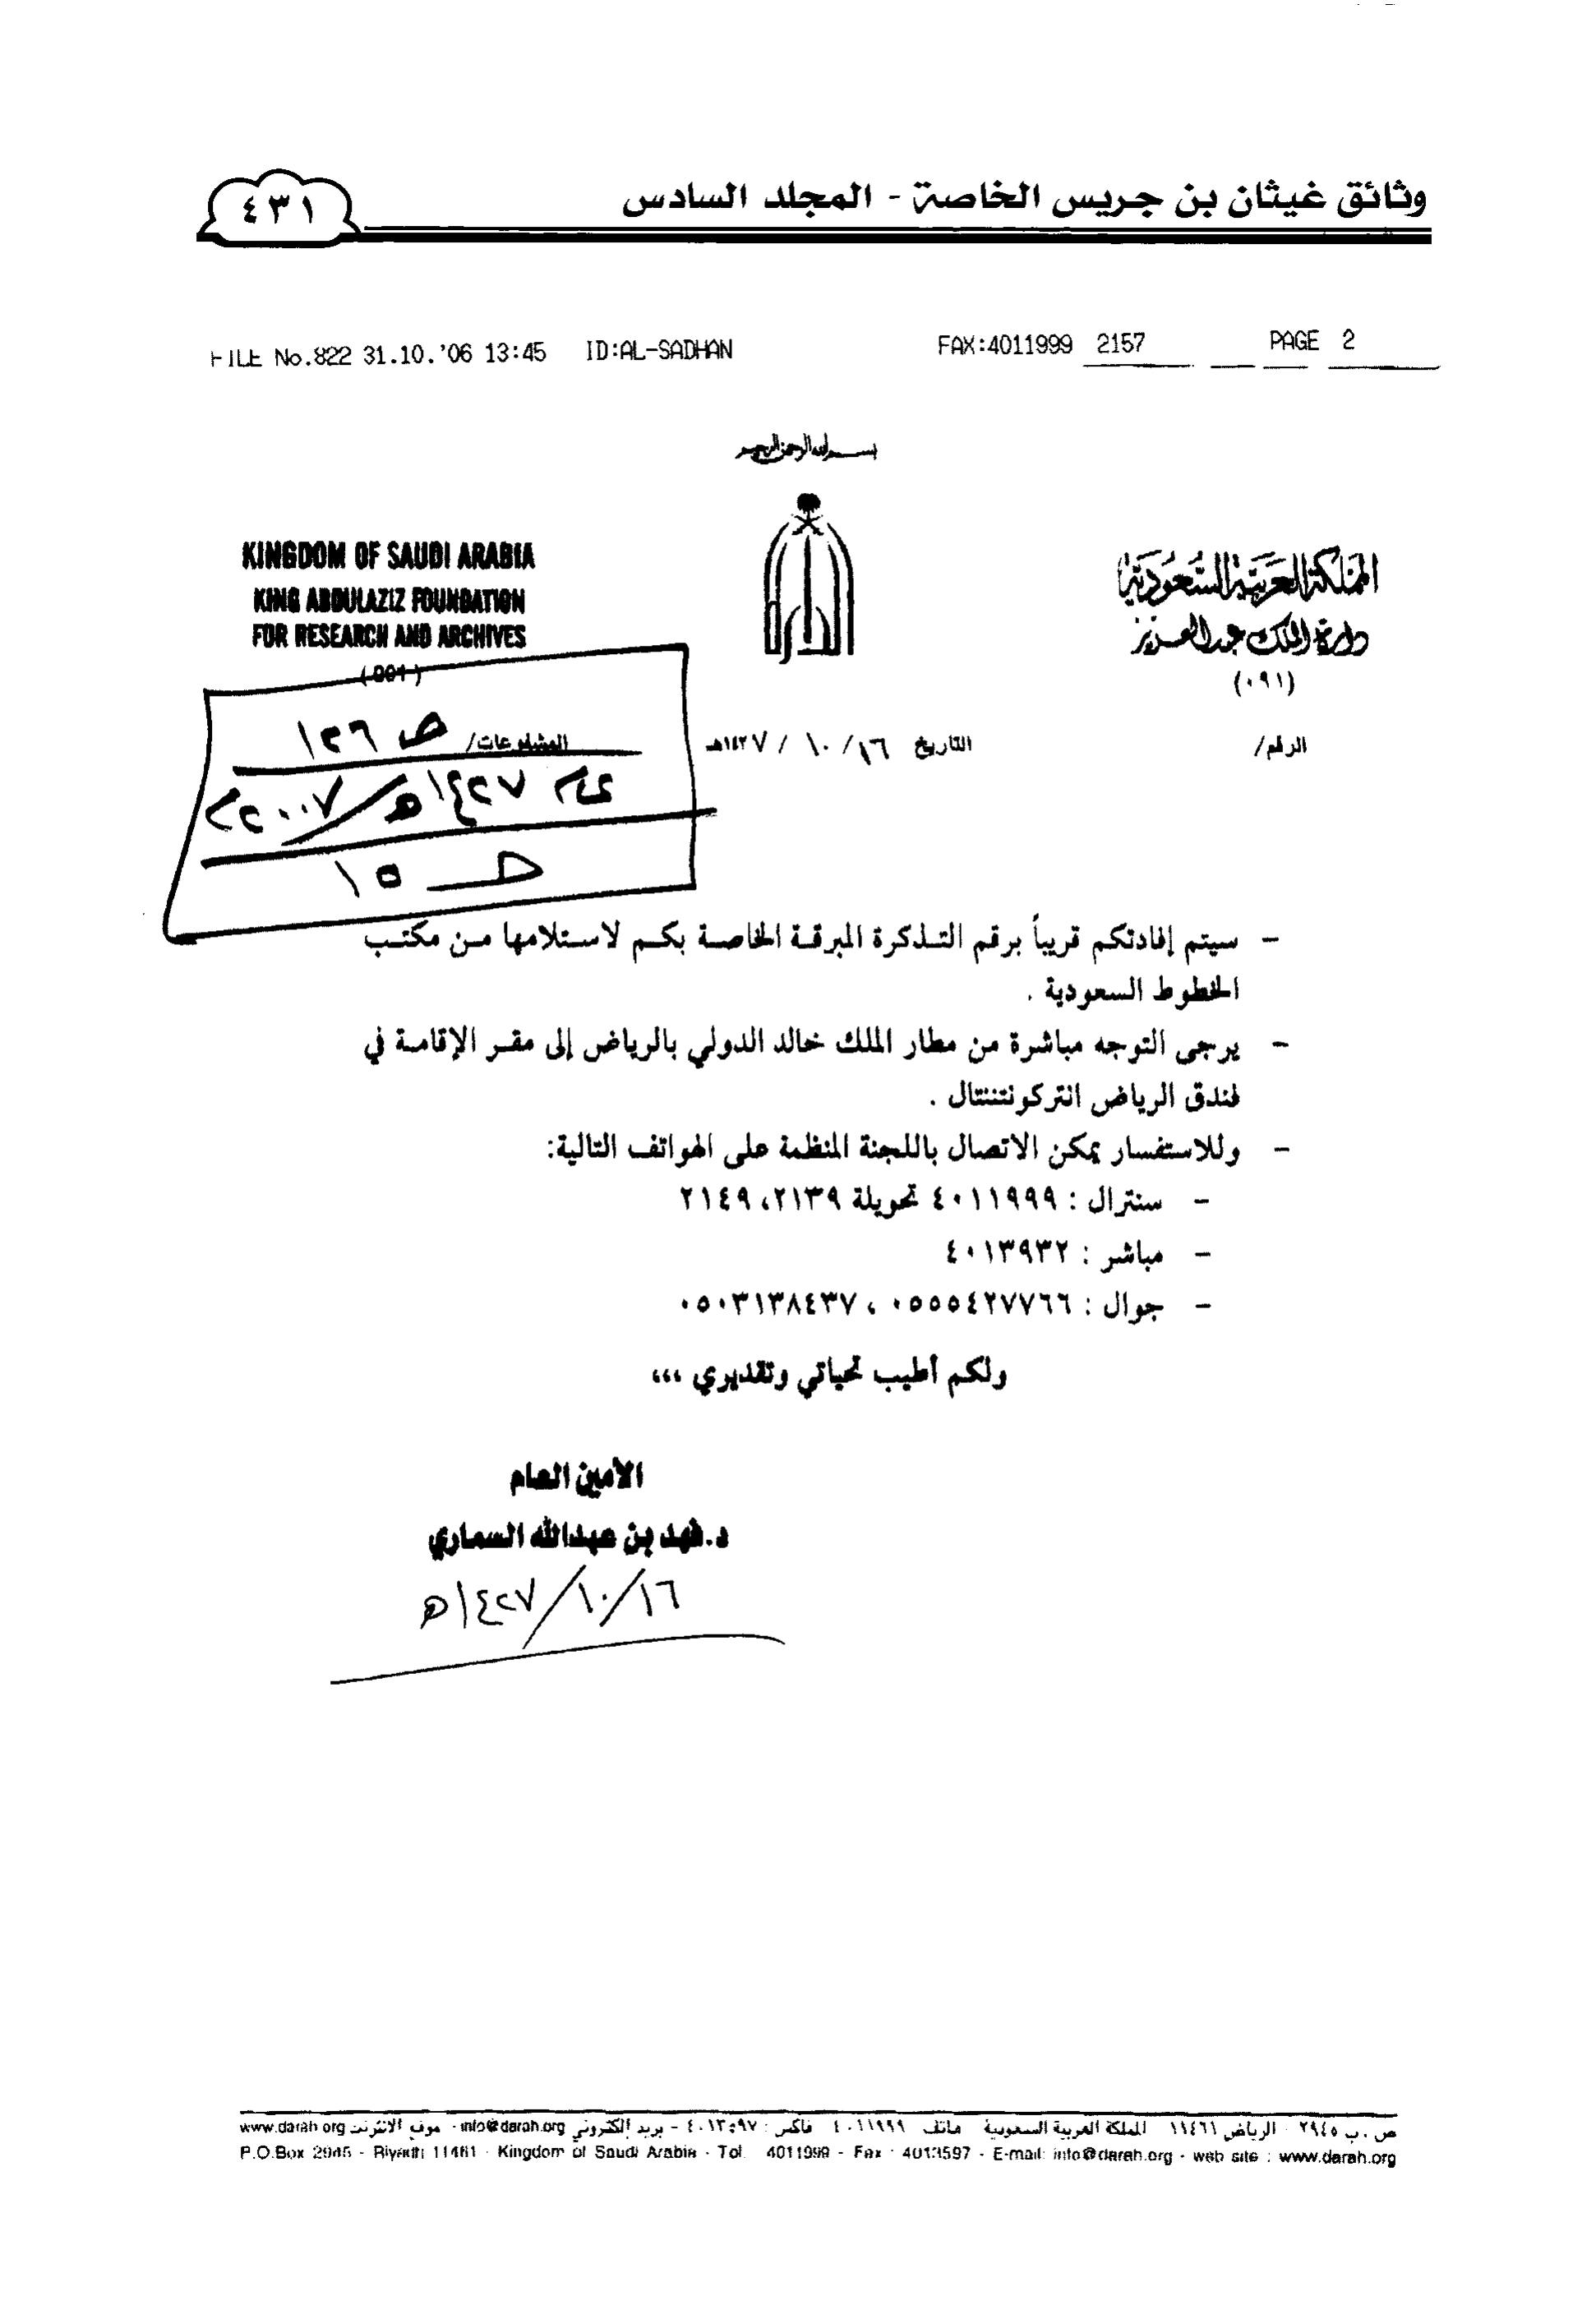 وثائق غيثان بن جريس الخاصة - المجلد السادس
٤٣١
FILE No.822 31.10.'06 13:45 ID:AL-SADHAN FAX:4011999 2157 PAGE 2
بسم الله الرحمن الرحيم
KINGDOM OF SAUDI ARABIA
KING ABDULAZIZ FOUNDATION
FOR RESEARCH AND ARCHIVES
(091)
المملكة العربية السعودية
دارة الملك عبدالعزيز
(٠٩١)
الرقم/
التاريخ ١٦/ ١٠ / ١٤٢٧هـ
المشفوعات/
ص ١٢٦
عام ١٤٢٧هـ/٢٠٠٧م
١٥
- سيتم إفادتكم قريباً برقم التذكرة المبرقة الخاصة بكم لاستلامها من مكتب
الخطوط السعودية .
- يرجى التوجه مباشرة من مطار الملك خالد الدولي بالرياض إلى مقر الإقامة في
فندق الرياض انتركونتننتال .
- وللاستفسار يمكن الاتصال باللجنة المنظمة على الهواتف التالية:
- سنترال : ٤٠١١٩٩٩ تحويلة ٢١٣٩، ٢١٤٩
- مباشر : ٤٠١٣٩٣٢
- جوال : ٠٥٥٥٤٢٧٧٦٦ ، ٠٥٠٣١٣٨٤٣٧
ولكم أطيب تحياتي وتقديري ،،،
الأمين العام
د.فهد بن عبدالله السماري
١٦/١٠/١٤٢٧هـ
ص . ب ٢٩٤٥ - الرياض ١١٤٦١ المملكة العربية السعودية هاتف ٤٠١١٩٩٩ فاكس : ٤٠١٣٥٩٧ - بريد إلكتروني info@darah.org - موقع الانترنت www.darah.org
P.O.Box 2945 - Riyadh 11461 - Kingdom of Saudi Arabia - Tel. 4011999 - Fax : 4013597 - E-mail: info@darah.org - web site : www.darah.org